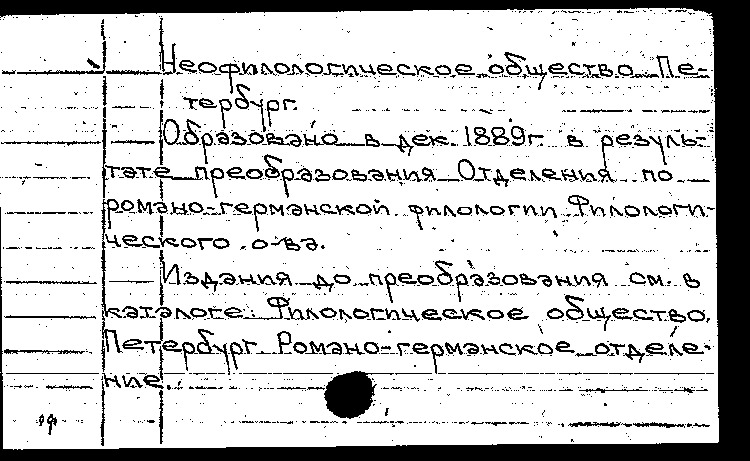 Неофилологическое общество. Пе-
тербург.
Образовано в дек. 1889г. в резуль-
тате преобразования Отделения по
романо-германской филологии Филологи-
ческого о-ва.
Издания до преобразования см. в
каталоге: Филологическое общество.
Петербург. Романо-германское отделе-
ние.